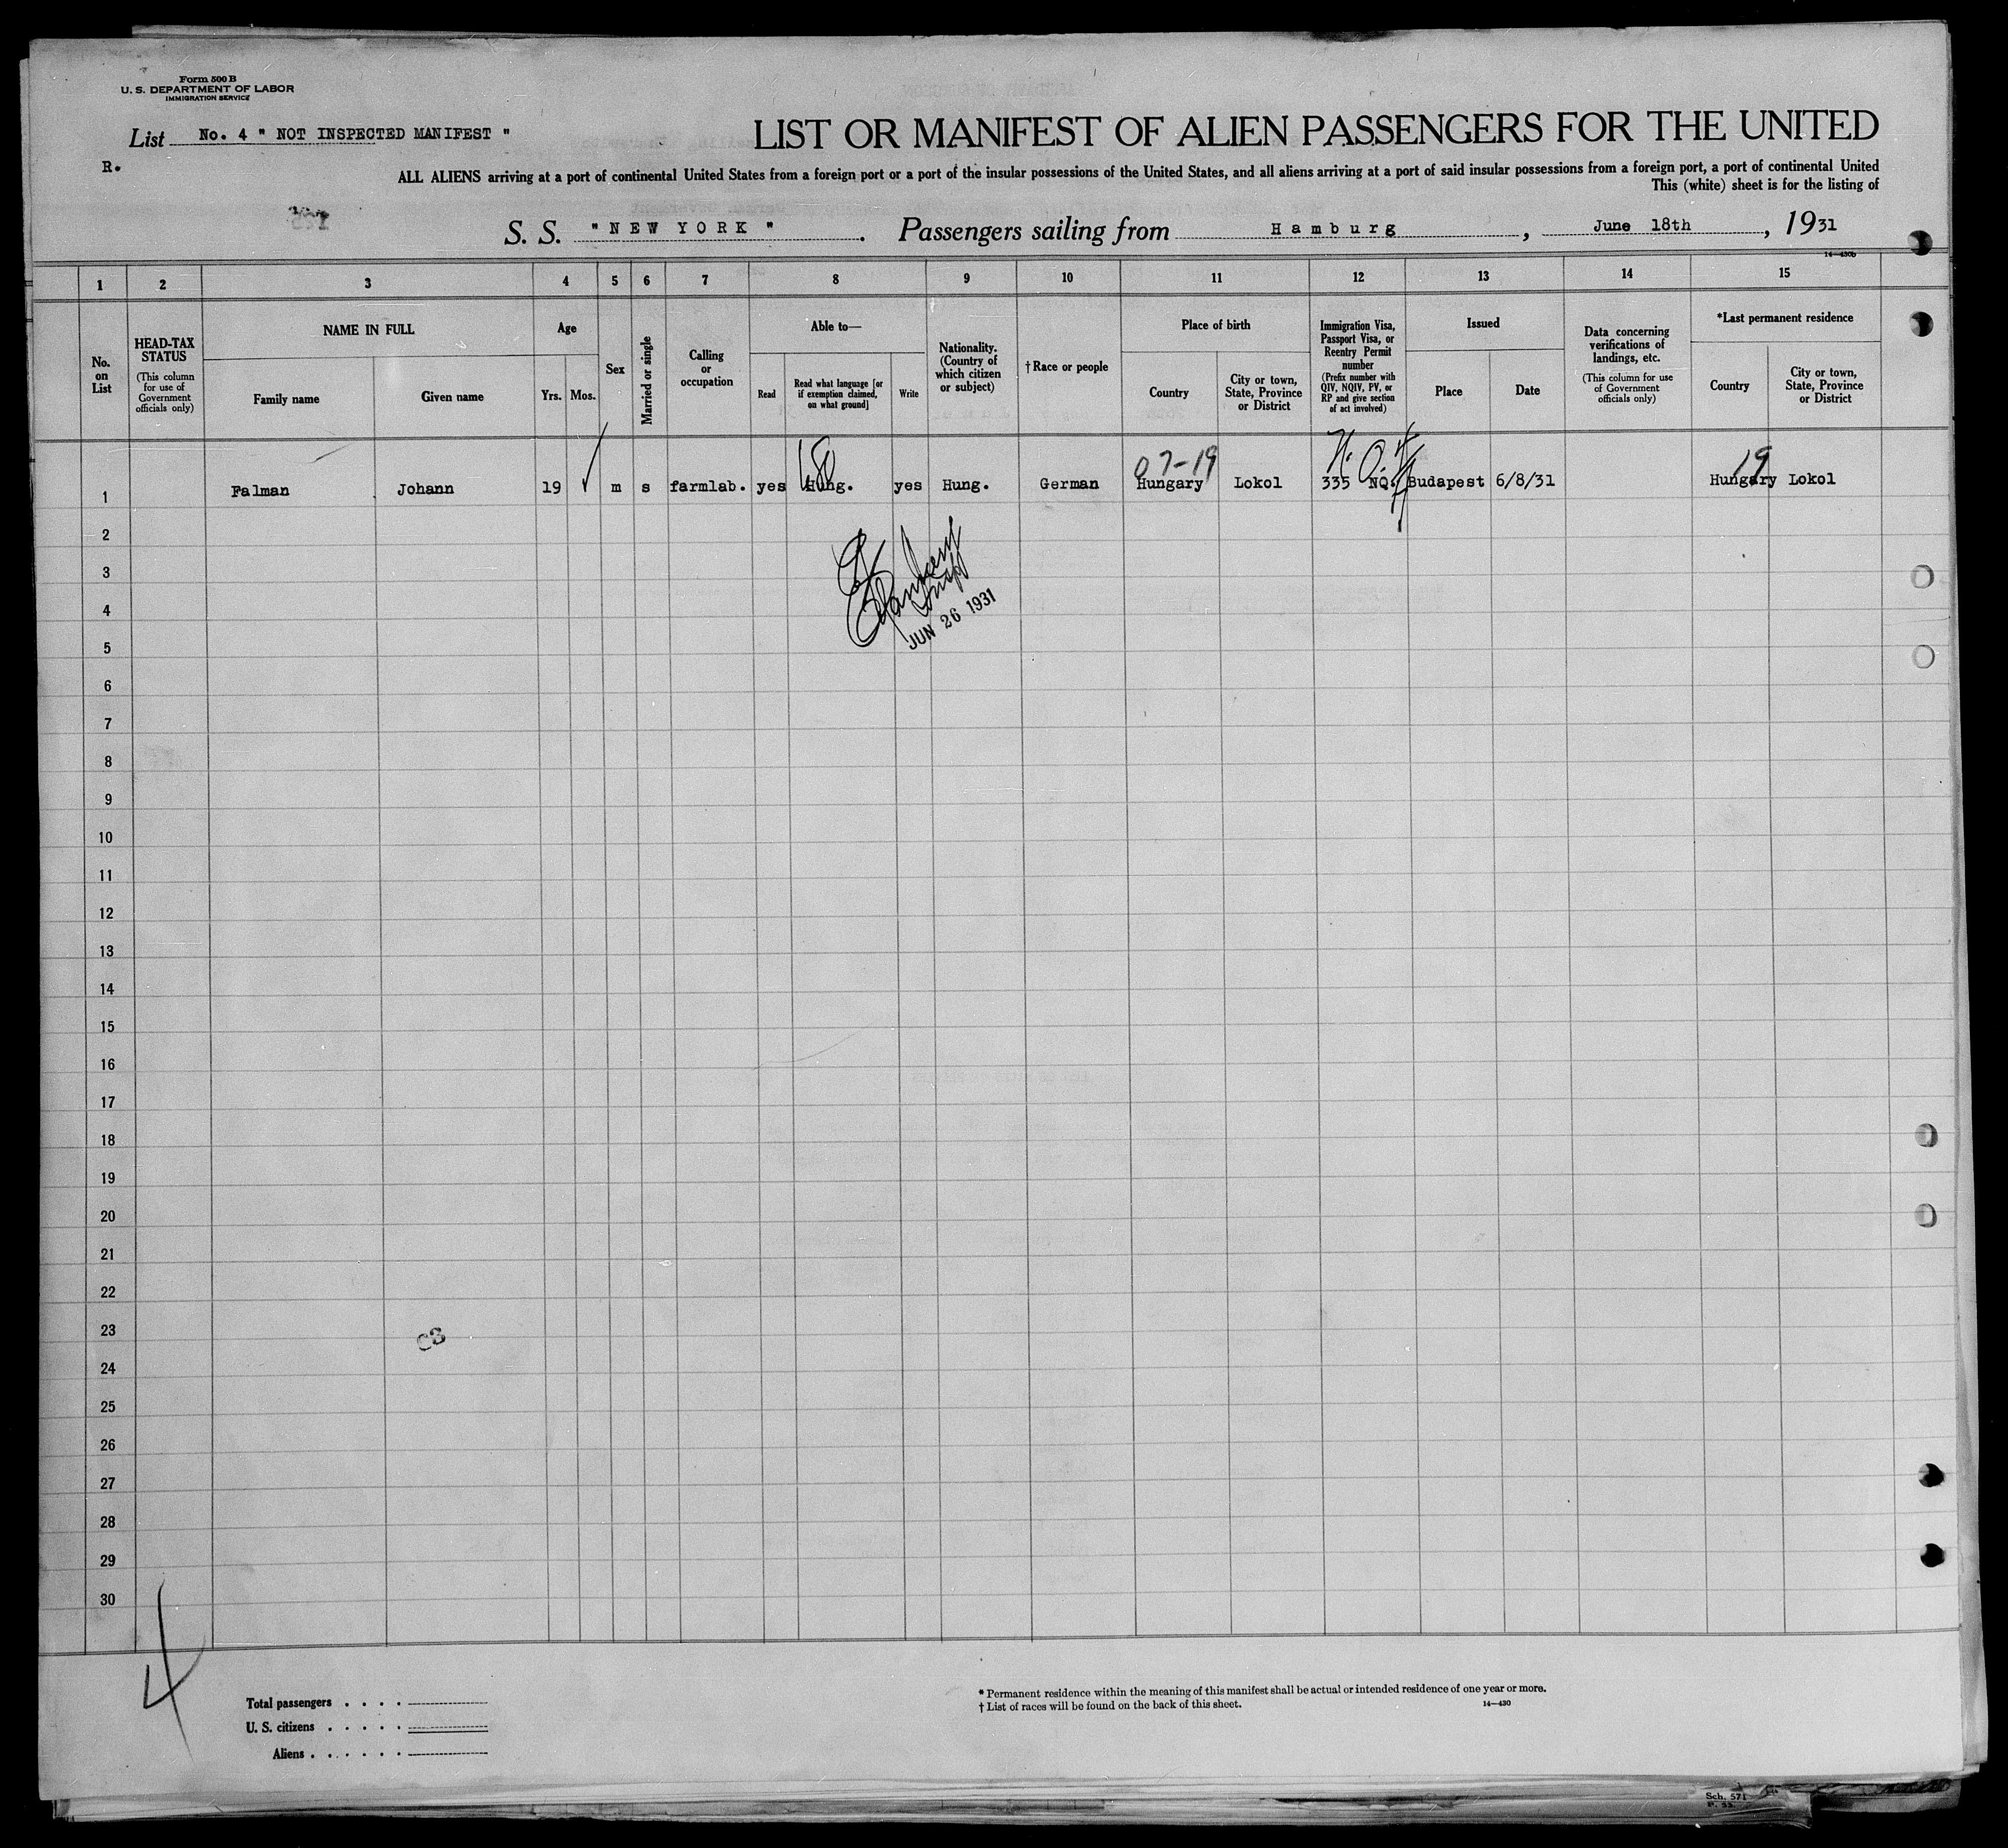 Form 500 B
U. S. DEPARTMENT OF LABOR
IMMIGRATION SERVICE
List No. 4 " NOT INSPECTED MANIFEST "
R.
LIST OR MANIFEST OF ALIEN PASSENGERS FOR THE UNITED
ALL ALIENS arriving at a port of continental United States from a foreign port or a port of the insular possessions of the United States, and all aliens arriving at a port of said insular possessions from a foreign port, a port of continental United
This (white) sheet is for the listing of
S. S. " N E W Y O R K " . Passengers sailing from H a m b u r g , June 18th , 1931
14—430b
1 2 3 4 5 6 7 8 9 10 11 12 13 14 15
No. on List
HEAD-TAX STATUS (This column for use of Government officials only)
NAME IN FULL
Family name
Given name
Age
Yrs.
Mos.
Sex
Married or single
Calling or occupation
Able to—
Read
Read what language [or if exemption claimed, on what ground]
Write
Nationality. (Country of which citizen or subject)
† Race or people
Place of birth
Country
City or town, State, Province or District
Immigration Visa, Passport Visa, or Reentry Permit number (Prefix number with QIV, NQIV, PV, or RP and give section of act involved)
Issued
Place
Date
Data concerning verifications of landings, etc. (This column for use of Government officials only)
*Last permanent residence
Country
City or town, State, Province or District
07-19 19
1 Falman Johann 19 m s farmlab. yes Hung. yes Hung. German Hungary Lokol 335 NQ. Budapest 6/8/31 Hungary Lokol
2
3
4
JUN 26 1931
5
6
7
8
9
10
11
12
13
14
15
16
17
18
19
20
21
22
23
24
25
26
27
28
29
30
4
Total passengers . . . .
U. S. citizens . . . . .
Aliens . . . . . .
* Permanent residence within the meaning of this manifest shall be actual or intended residence of one year or more.
† List of races will be found on the back of this sheet. 14—430
Sch. 571